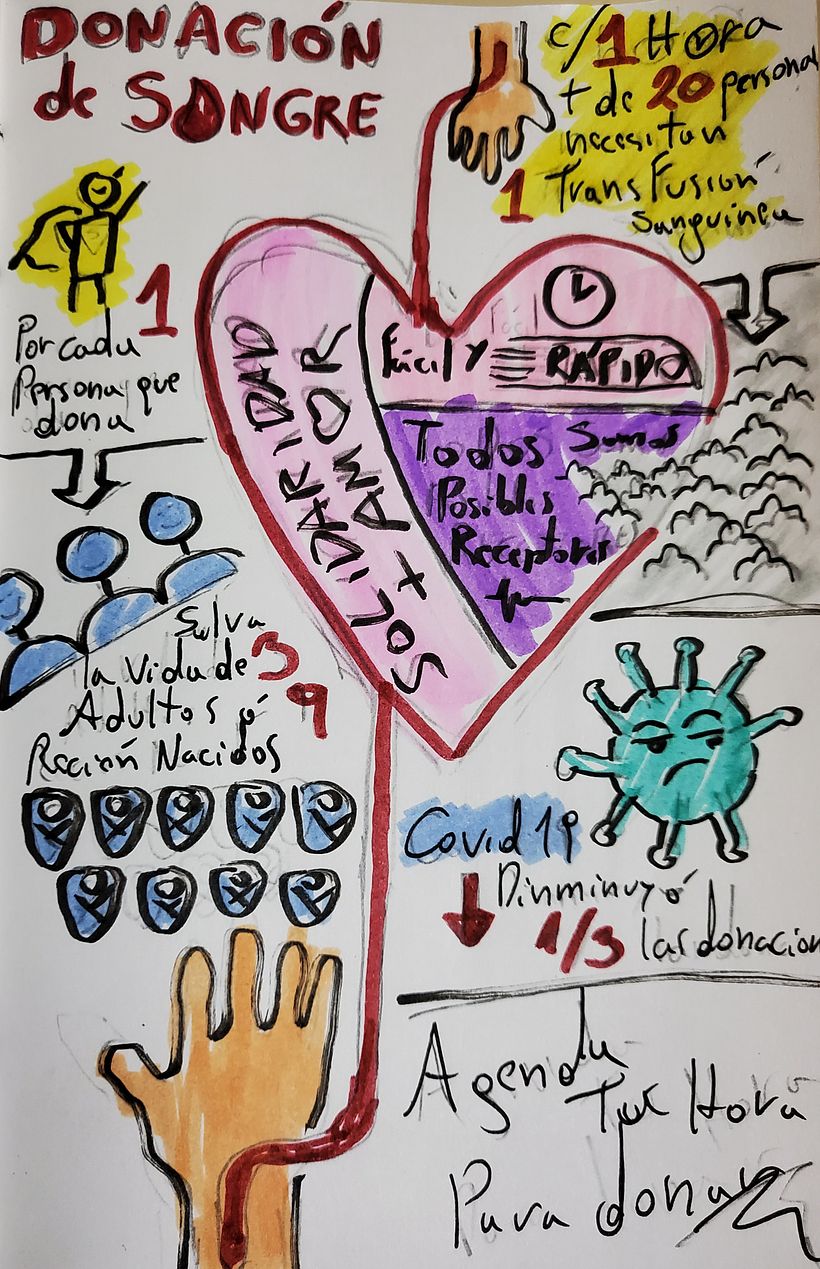 DONACIÓN
de SANGRE
c/1 HORA
+ de 20 personas
necesitan
1 Transfusión
sanguínea
1
Por cada
Persona que
dona
Salva
la Vida de 3
Adultos ó 9
Recién Nacidos
SOLIDARIDAD
+ AMOR
fácil y RÁPIDO
Todos Somos
Posibles
Receptores
Covid 19
Dinminuyó
1/3 las donacion
Agenda
Tu Hora
Para donar